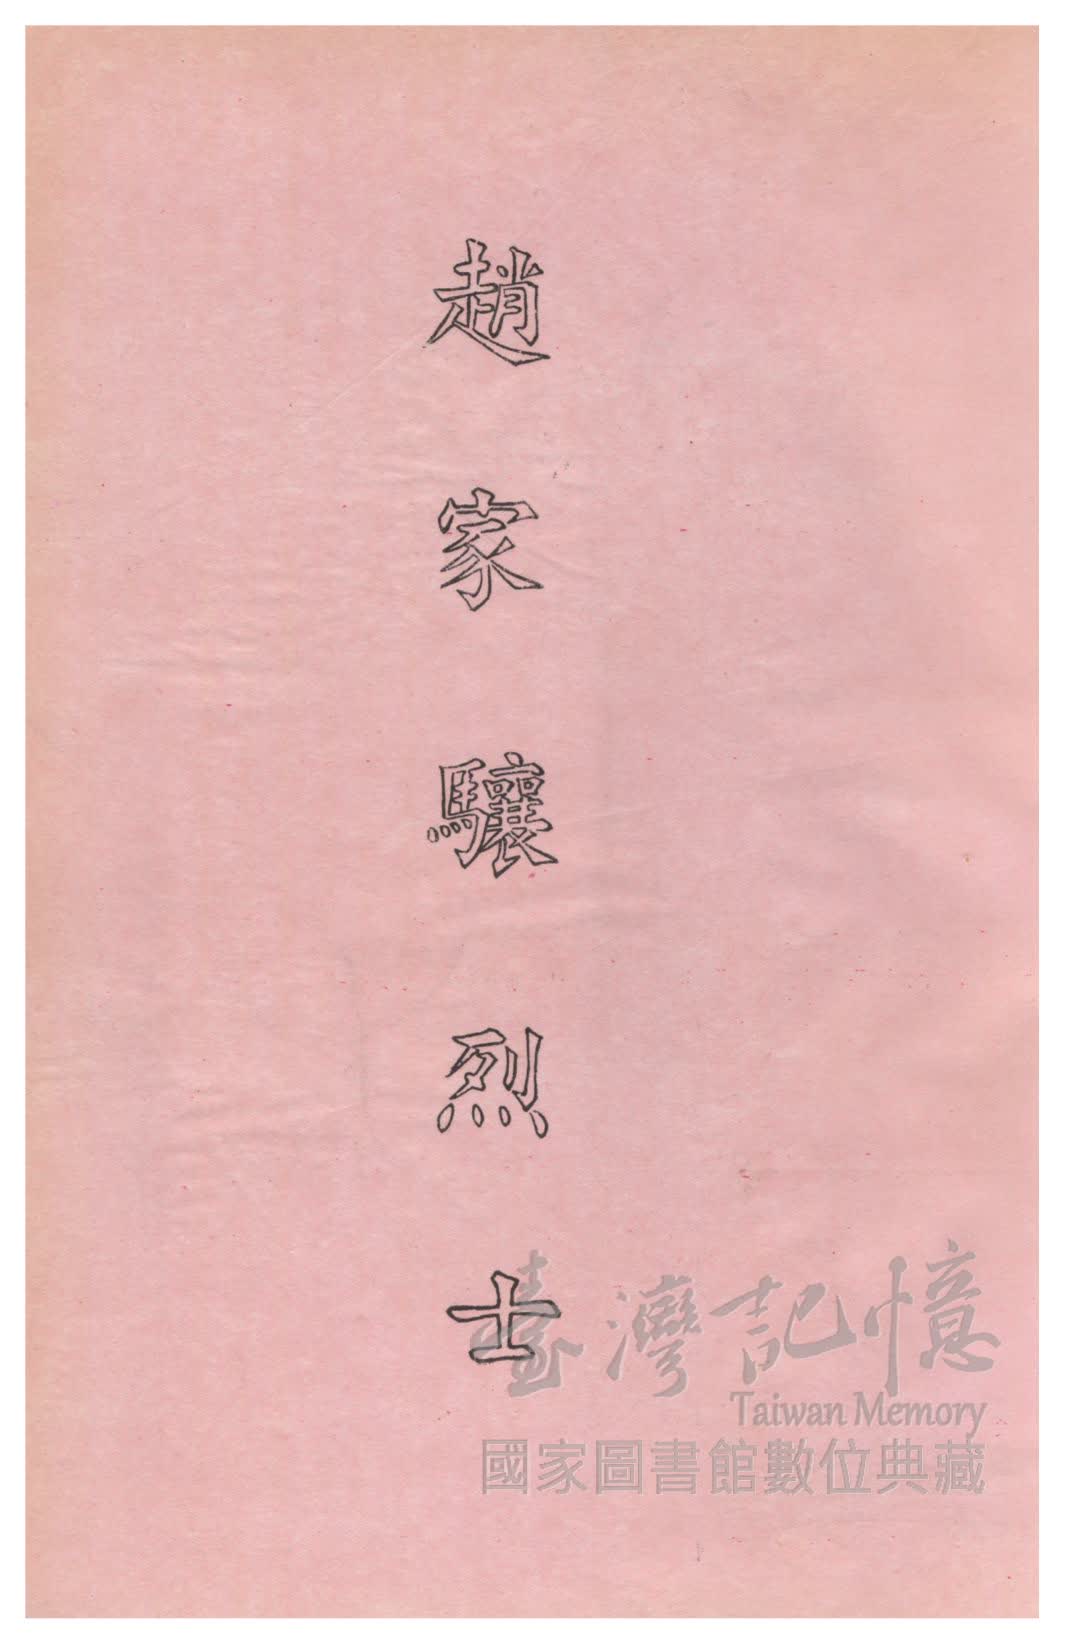 趙家驤烈士
臺灣記憶
Taiwan Memory
國家圖書館數位典藏